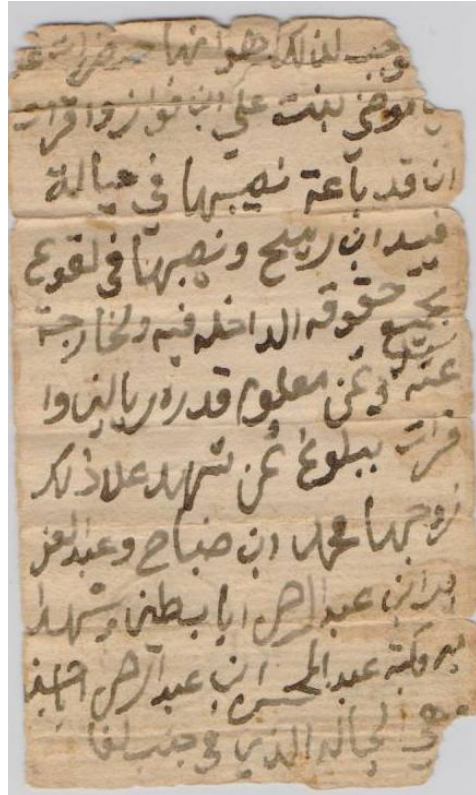 موجب لذلك هو انها حضرات عند
موضي بنت علي ابن فواز واقرات
ان قد باعة نصيبها في حيالة
فيد ابن رميح ونصيبها في لقوع
بجميع حقوقه الداخله فيه ولخارجة
عنه وثمن معلوم قدره ريالين وا
قرات ببلوغ ثمن شهد علا ذلك
زوجها محمد ابن صباح وعبد العز
يز ابن عبد الرحمن ابا بطين وشهد
به وكتبه عبد المحسن ابن عبد الرحمن
هي الحياله الذي في جنب